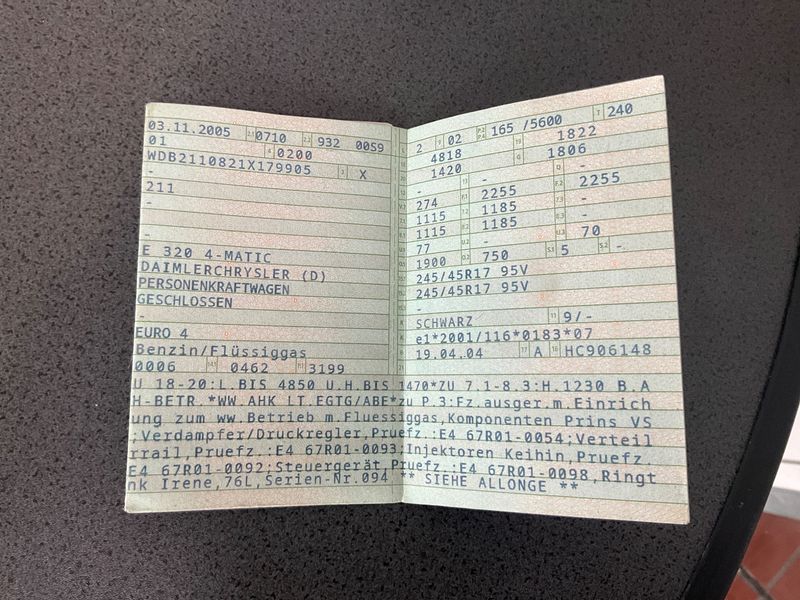 03.11.2005 2.1 0710 2.2 932 00S9
01 4 0200
WDB2110821X179905 3 X
-
211
-
-
E 320 4-MATIC
DAIMLERCHRYSLER (D)
PERSONENKRAFTWAGEN
GESCHLOSSEN
-
EURO 4
Benzin/Flüssiggas
0006 0462 3199
2 9 02 P.2 P.4 165 /5600 T 240
4818 1822
1420 G 1806
- - Q -
274 F.1 2255 F.2 2255
1115 7.2 1185 7.3 -
1115 8.2 1185 8.3 -
77 U.2 - U.3 70
1900 O.2 750 S.1 5 S.2 -
245/45R17 95V
245/45R17 95V
-
SCHWARZ 11 9/-
e1*2001/116*0183*07
19.04.04 17 A 16 HC906148
U 18-20:L.BIS 4850 U.H.BIS 1470*ZU 7.1-8.3:H.1230 B.A
H-BETR.*WW.AHK LT.EGTG/ABE*zu P.3:Fz.ausger.m.Einrich
ung zum ww.Betrieb m.Fluessiggas,Komponenten Prins VS
;Verdampfer/Druckregler,Pruefz.:E4 67R01-0054;Verteil
rrail,Pruefz.:E4 67R01-0093;Injektoren Keihin,Pruefz.
E4 67R01-0092;Steuergerät,Pruefz.:E4 67R01-0098,Ringt
nk Irene,76L,Serien-Nr.094 ** SIEHE ALLONGE **